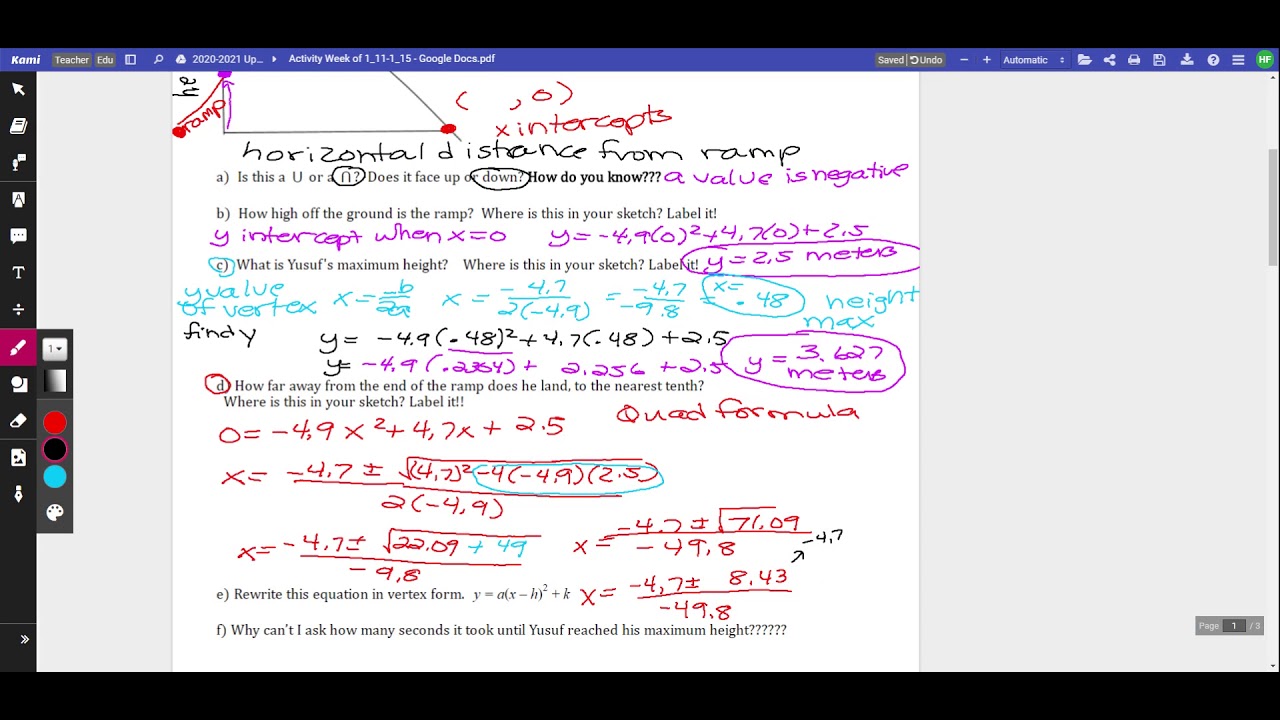 Kami Teacher Edu 2020-2021 Up... Activity Week of 1_11-1_15 - Google Docs.pdf Saved Undo Automatic HF
ramp
( , 0)
x intercepts
horizontal distance from ramp
a) Is this a U or a ∩? Does it face up or down? How do you know??? a value is negative
b) How high off the ground is the ramp? Where is this in your sketch? Label it!
y intercept when x=0 y=-4,9(0)²+4,7(0)+2.5
c) What is Yusuf's maximum height? Where is this in your sketch? Label it! y=2,5 meters
y value of vertex x=-b/2a x=-4,7/2(-4,9) =-4,7/-9.8 = x=.48 height max
find y y=-4.9(.48)²+4,7(.48)+2.5
y=-4.9(.2304)+2.256+2.5 y=3.627 meters
d) How far away from the end of the ramp does he land, to the nearest tenth?
Where is this in your sketch? Label it!!
Quad formula
0=-4,9x²+4,7x+2.5
x=-4.7±√(4,7)²-4(-4,9)(2.5)/2(-4,9)
x=-4,7±√22.09+49/-9,8 x=-4.7±√71,09/-49,8 -4,7
e) Rewrite this equation in vertex form. y = a(x – h)² + k x=-4,7± 8.43/-49,8
f) Why can't I ask how many seconds it took until Yusuf reached his maximum height??????
Page 1 / 3